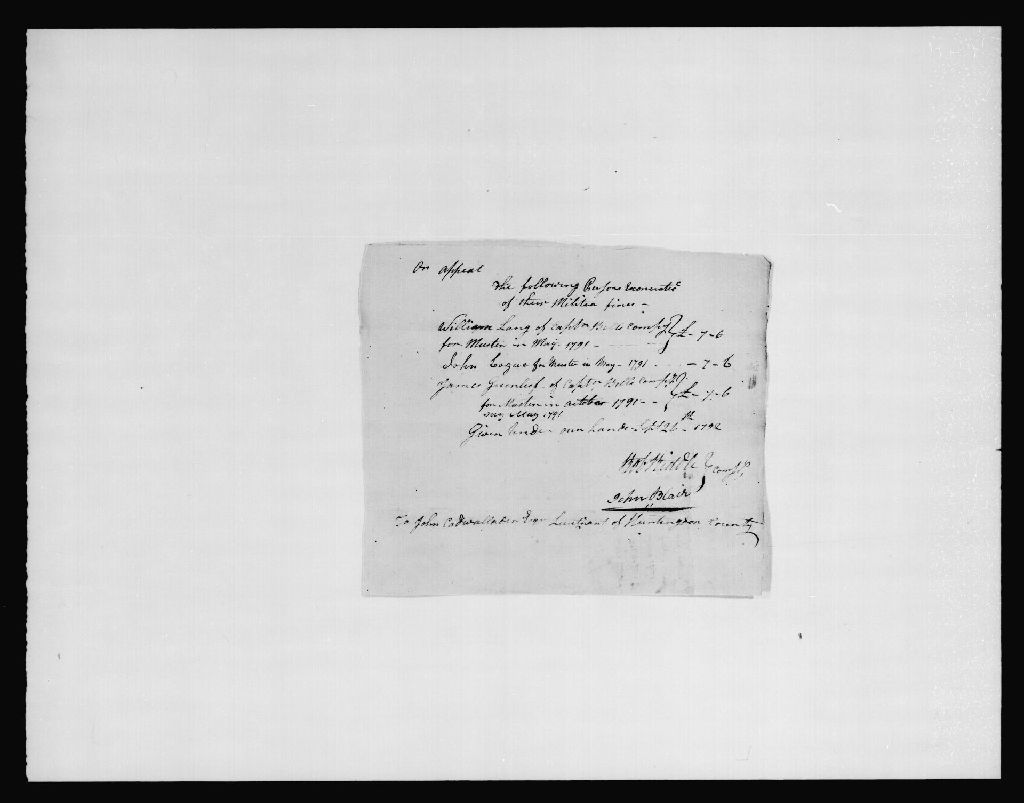 On appeal
The following Persons Exonerated
of their Militia fines -
William Long of Capt Bells Compy
for Muster in May 1791 - - 7-6
John Logue for Muster in May - 1791 - - 7-6
James Greenleaf of Capt Bells Compy
for Muster in october 1791 - - 7-6
say May 1791
Given Under our hands Sept 26th 1792
Robt Riddle
John Blair
To John Cadwallader Esqr Lieutnant of Huntingdon County